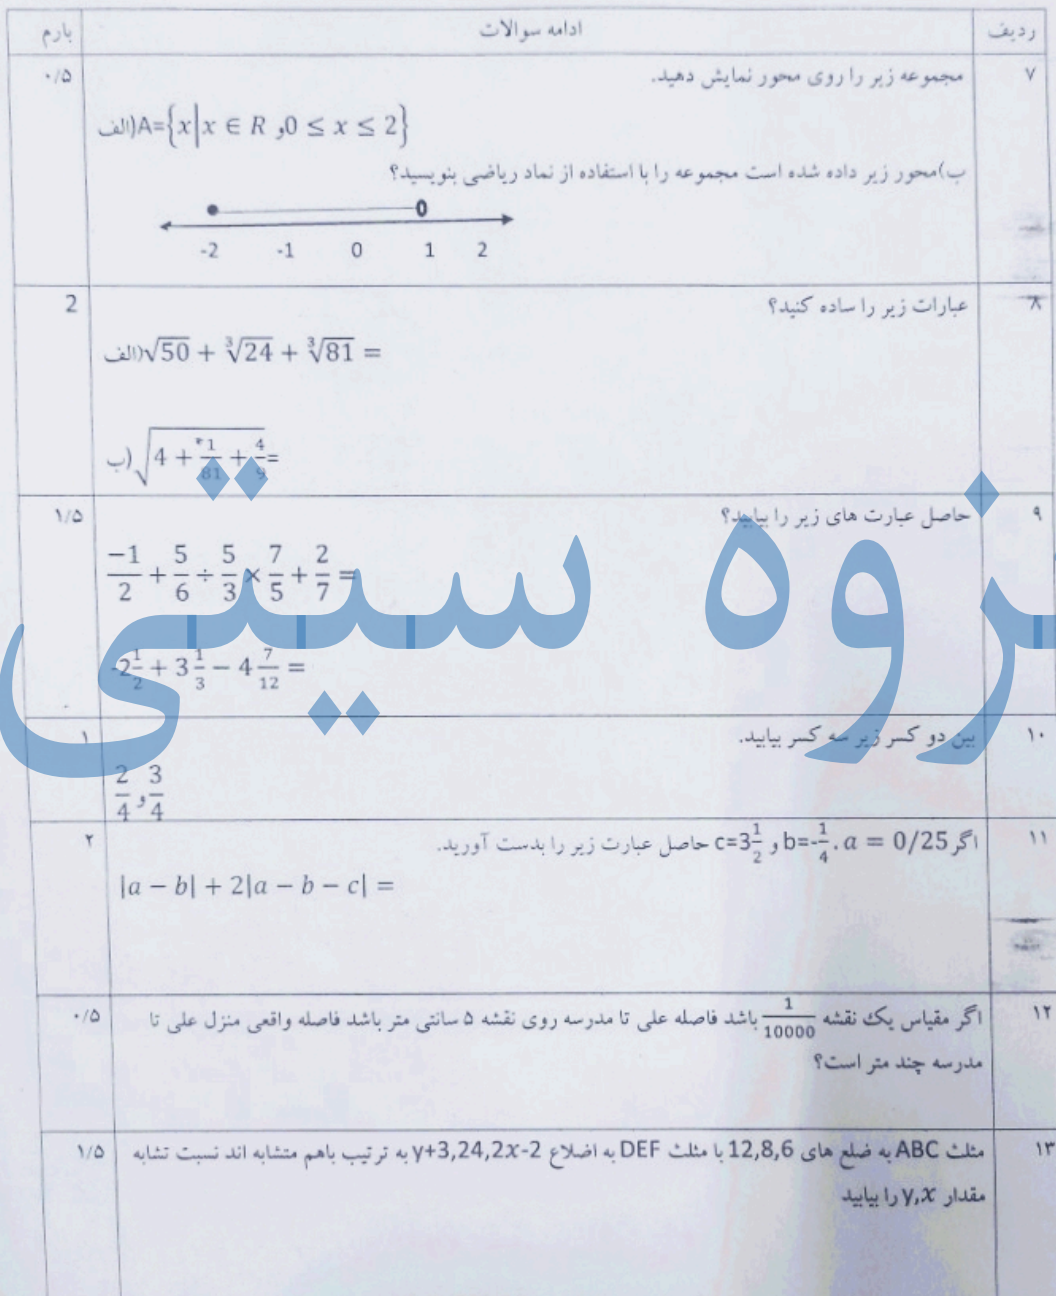 ردیف ادامه سوالات بارم
۷ مجموعه زیر را روی محور نمایش دهید. ۰/۵
الف) A={x|x ∈ R و 0 ≤ x ≤ 2}
ب)محور زیر داده شده است مجموعه را با استفاده از نماد ریاضی بنویسید؟
-2 -1 0 1 2
۸ عبارات زیر را ساده کنید؟ 2
الف) √50 + ∛24 + ∛81 =
ب) √(4 + 1/81 + 4/9) =
۹ حاصل عبارت های زیر را بیابید؟ ۱/۵
-1/2 + 5/6 ÷ 5/3 × 7/5 + 2/7 =
-2 1/2 + 3 1/3 − 4 7/12 =
۱۰ بین دو کسر زیر سه کسر بیابید. ۱
2/4 و 3/4
۱۱ اگر a = 0/25 ، b=-1/4 و c=3 1/2 حاصل عبارت زیر را بدست آورید. ۲
|a − b| + 2|a − b − c| =
۱۲ اگر مقیاس یک نقشه 1/10000 باشد فاصله علی تا مدرسه روی نقشه ۵ سانتی متر باشد فاصله واقعی منزل علی تا ۰/۵
مدرسه چند متر است؟
۱۳ مثلث ABC به ضلع های 12,8,6 با مثلث DEF به اضلاع y+3,24,2x-2 به ترتیب باهم متشابه اند نسبت تشابه ۱/۵
مقدار y,x را بیابید
زوه سیتی